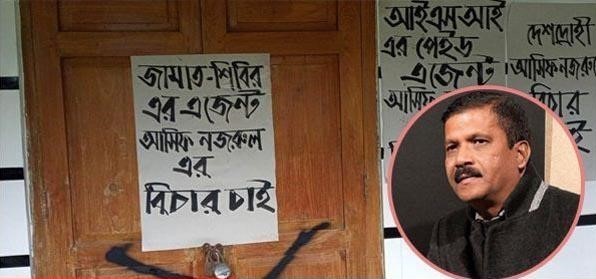 জামাত-শিবির
এর এজেন্ট
আসিফ নজরুল
এর
বিচার চাই
আইএস আই
এর পেইড
এজেন্ট
আসিফ
দেশদ্রোহী
আসিফ নজরুল
বিচার